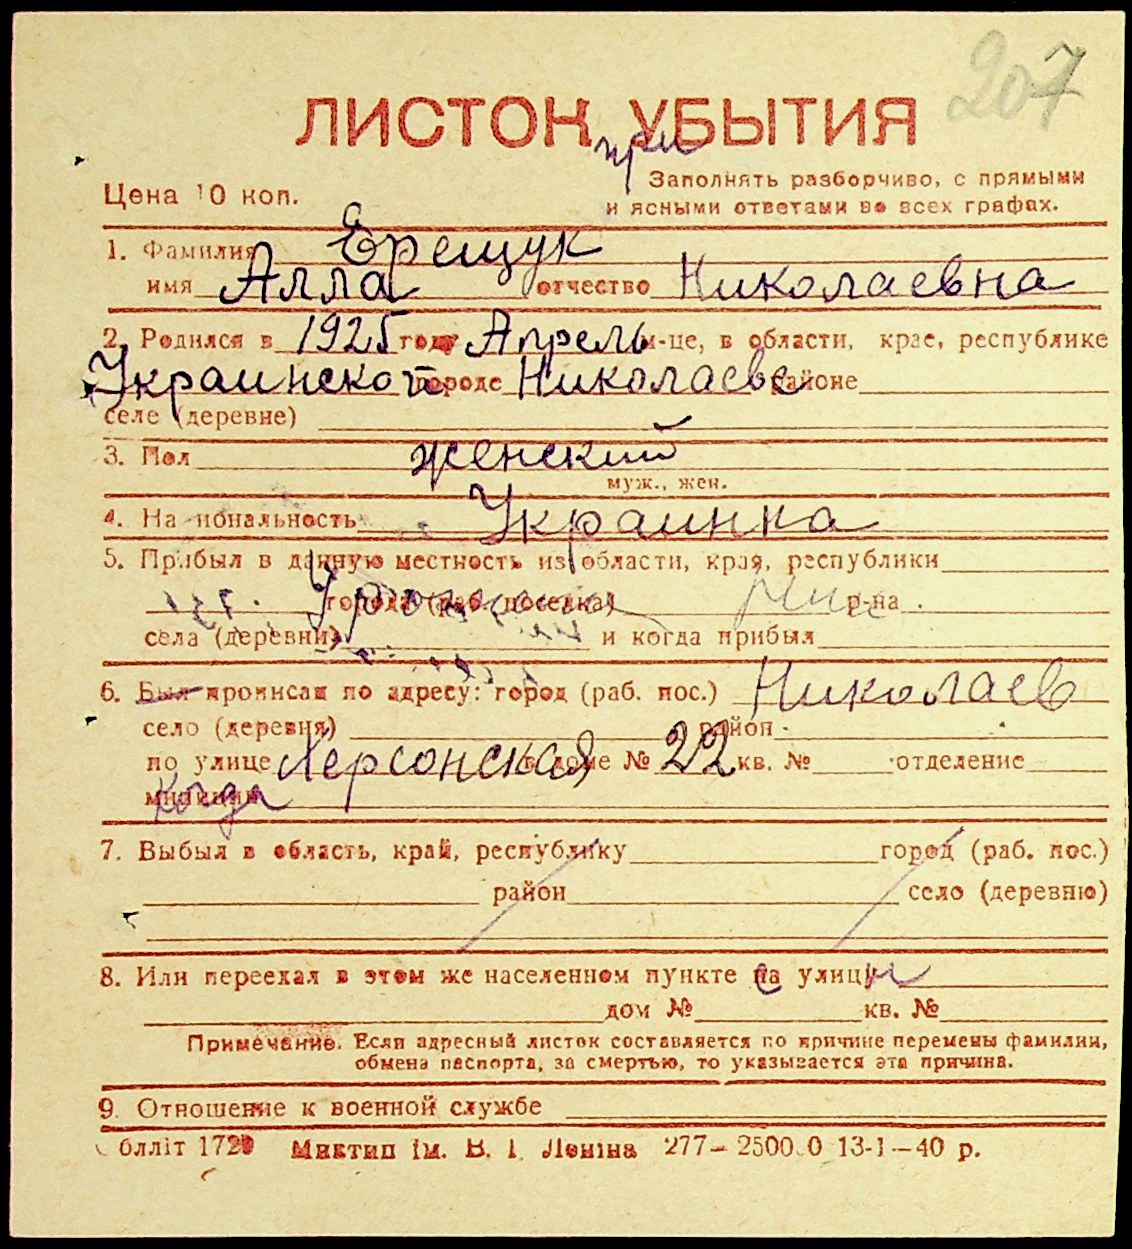 207
ЛИСТОК УБЫТИЯ
при
Цена 10 коп.
Заполнять разборчиво, с прямыми
и ясными ответами во всех графах.
1. Фамилия Ерещук
имя Алла отчество Николаевна
2. Родился в 1925 году Апрель м-це, в области, крае, республике
Украинской городе Николаеве районе
селе (деревне)
3. Пол женский
муж., жен.
4. Национальность Украинка
5. Прибыл в данную местность из области, края, республики
города (раб. поселка) р-на
села (деревни) и когда прибыл
6. Был прописан по адресу: город (раб. пос.) Николаев
село (деревня) район
по улице Херсонская в доме № 22 кв. № отделение
милиции Когда
7. Выбыл в область, край, республику город (раб. пос.)
район село (деревню)
8. Или переехал в этом же населенном пункте на улицу
дом № кв. №
Примечание. Если адресный листок составляется по причине перемены фамилии,
обмена паспорта, за смертью, то указывается эта причина.
9. Отношение к военной службе
блліт 1720 Миктип ім. В. І. Леніна 277—2500.0 13-1—40 р.